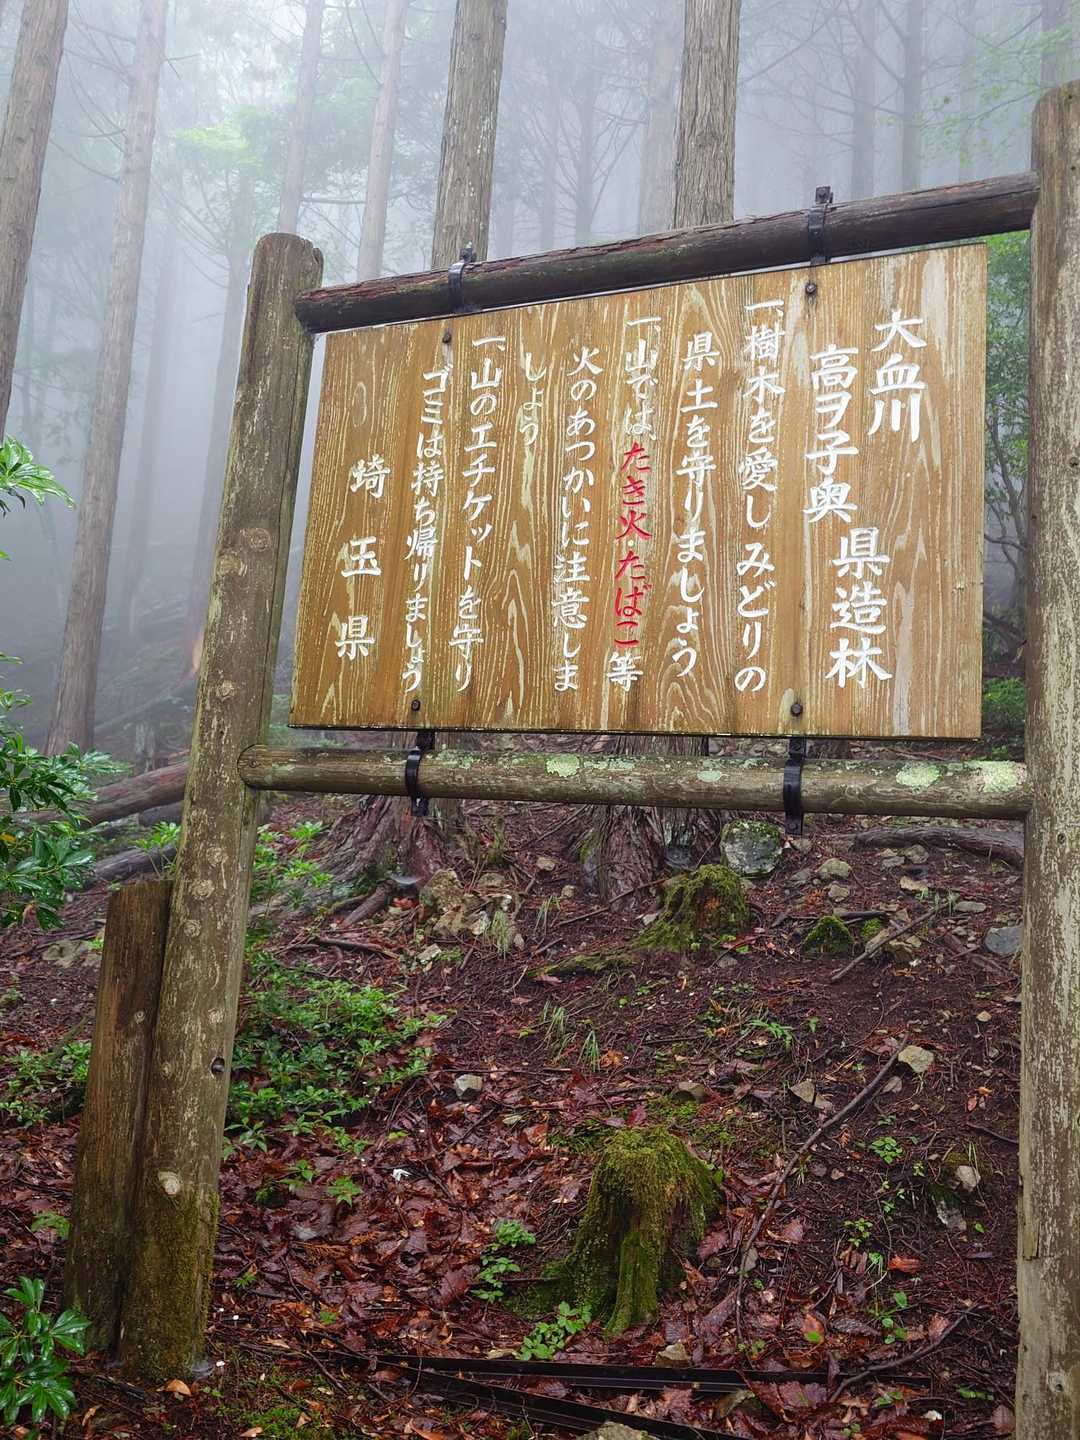 大血川
高ヲ子奥
県造林
一、樹木を愛しみどりの
県土を守りましょう
一、山ではたき火たばこ等
火のあつかいに注意しま
しょう
一、山のエチケットを守り
ゴミは持ち帰りましょう
埼玉県